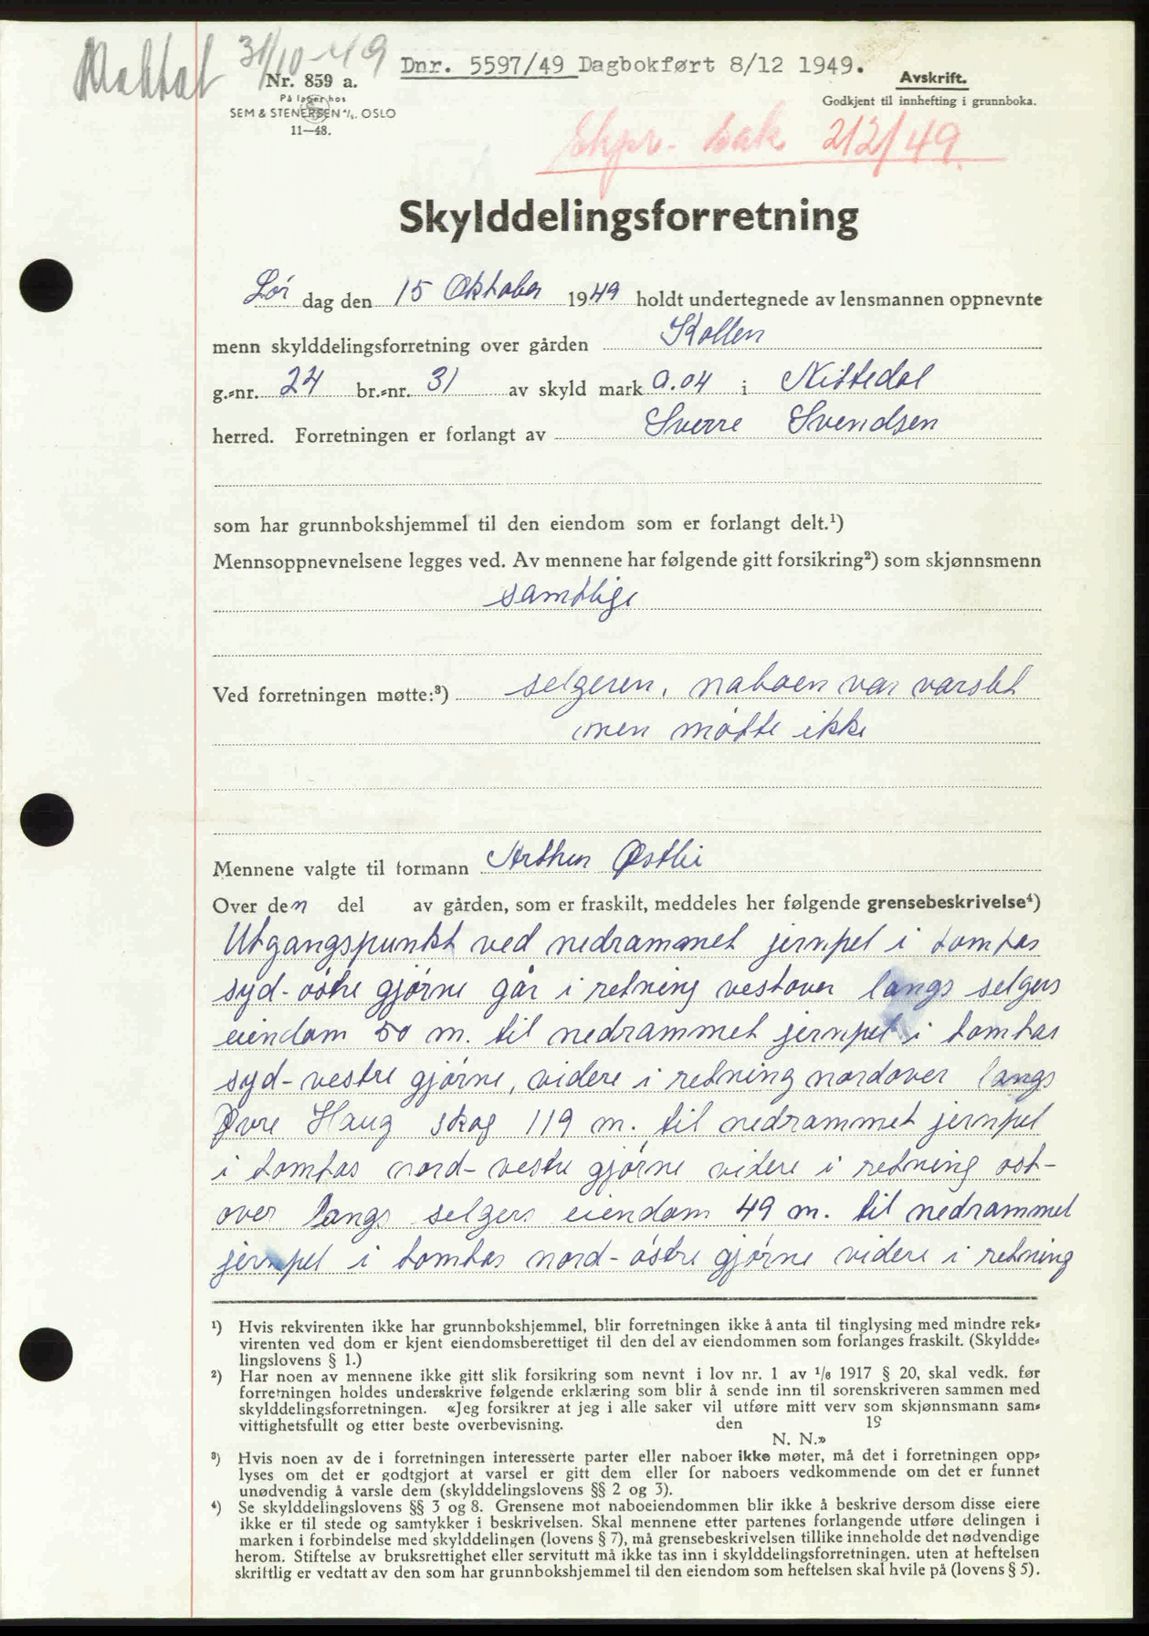 Mottat 31/10-49
Dnr. 5597/49 Dagbokført 8/12 1949.
Nr. 859 a.
På lager hos
SEM & STENERSEN A/S. OSLO
11—48.
Avskrift.
Godkjent til innhefting i grunnboka.
Ekspr. bak 2/12/49.
Skylddelingsforretning
Lør dag den 15 Oktober 1949 holdt undertegnede av lensmannen oppnevnte
menn skylddelingsforretning over gården Kollen
g.-nr. 24 br.-nr. 31 av skyld mark 0.04 i Nittedal
herred. Forretningen er forlangt av Sverre Svendsen
som har grunnbokshjemmel til den eiendom som er forlangt delt.¹)
Mennsoppnevnelsene legges ved. Av mennene har følgende gitt forsikring²) som skjønnsmenn
samtlige
Ved forretningen møtte:³) selgeren, naboen var varslet
men møtte ikke
Mennene valgte til formann Arthur Østli
Over den del av gården, som er fraskilt, meddeles her følgende grensebeskrivelse⁴)
Utgangspunkt ved nedrammet jernpel i tomtas
syd-østre gjørne går i retning vestover langs selgers
eiendom 50 m. til nedrammet jernpel i tomtas
syd-vestre gjørne, videre i retning nordover langs
Øvre Haug skog 119 m. til nedrammet jernpel
i tomtas nord-vestre gjørne videre i retning øst-
over langs selgers eiendom 49 m. til nedrammet
jernpel i tomtas nord-østre gjørne videre i retning
¹) Hvis rekvirenten ikke har grunnbokshjemmel, blir forretningen ikke å anta til tinglysing med mindre rek-
virenten ved dom er kjent eiendomsberettiget til den del av eiendommen som forlanges fraskilt. (Skyldde-
lingslovens § 1.)
²) Har noen av mennene ikke gitt slik forsikring som nevnt i lov nr. 1 av 1/6 1917 § 20, skal vedk. før
forretningen holdes underskrive følgende erklæring som blir å sende inn til sorenskriveren sammen med
skylddelingsforretningen. «Jeg forsikrer at jeg i alle saker vil utføre mitt verv som skjønnsmann sam-
vittighetsfullt og etter beste overbevisning. den 19
N. N.»
³) Hvis noen av de i forretningen interesserte parter eller naboer ikke møter, må det i forretningen opp-
lyses om det er godtgjort at varsel er gitt dem eller for naboers vedkommende om det er funnet
unødvendig å varsle dem (skylddelingslovens §§ 2 og 3).
⁴) Se skylddelingslovens §§ 3 og 8. Grensene mot naboeiendommen blir ikke å beskrive dersom disse eiere
ikke er til stede og samtykker i beskrivelsen. Skal mennene etter partenes forlangende utføre delingen i
marken i forbindelse med skylddelingen (lovens § 7), må grensebeskrivelsen tillike inneholde det nødvendige
herom. Stiftelse av bruksrettighet eller servitutt må ikke tas inn i skylddelingsforretningen. uten at heftelsen
skriftlig er vedtatt av den som har grunnbokshjemmel til den eiendom som heftelsen skal hvile på (lovens § 5).